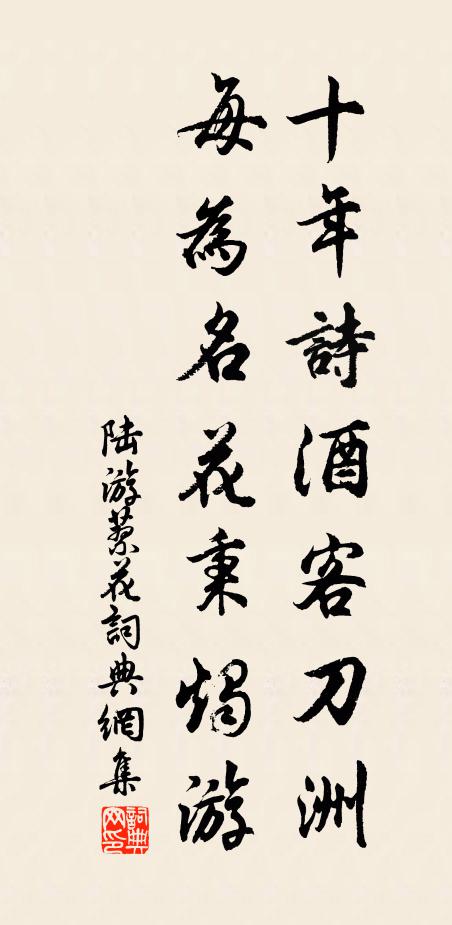 十年詩酒客刀洲
每為名花秉燭游
陆游蔡花詞典網集
詞典网印